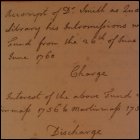 Account of Dr Smith as Quæ
Library his Intromissions
Fund from the 26th of June
June 1760
Charge
Interest of the above Fund
1756 to Martinmass 175
Discharge